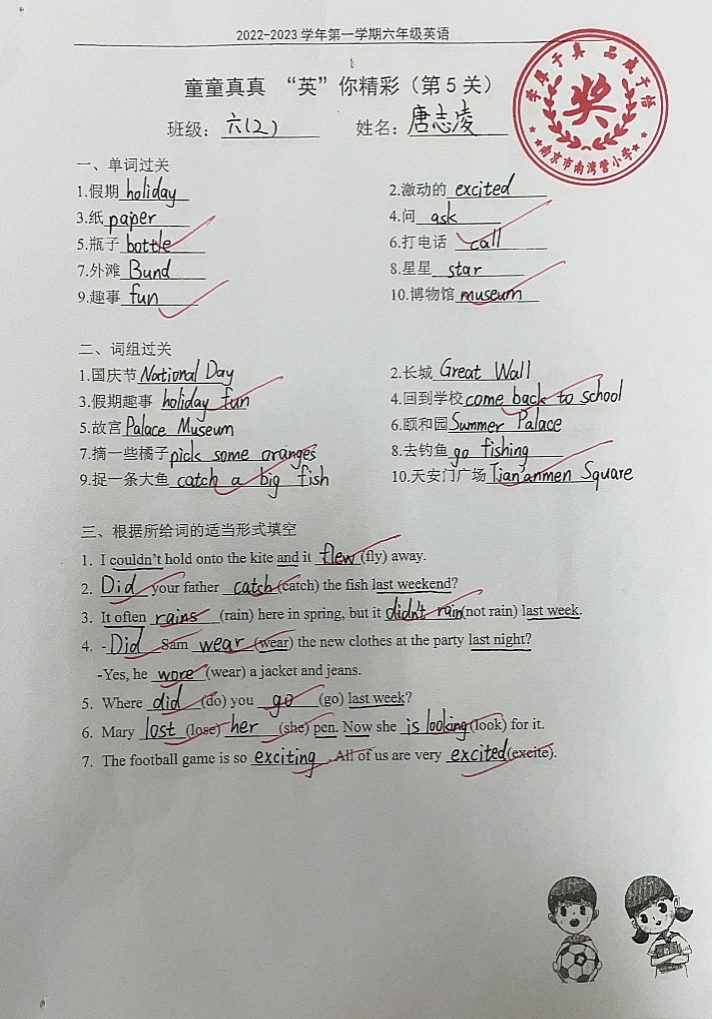 2022-2023 学年第一学期六年级英语
童童真真 “英”你精彩（第 5 关）
班级： 六(2) 姓名： 唐志凌
学真于真 品成于悟
奖
南京市南湾营小学
一、单词过关
1.假期 holiday 2.激动的 excited
3.纸 paper 4.问 ask
5.瓶子 bottle 6.打电话 call
7.外滩 Bund 8.星星 star
9.趣事 fun 10.博物馆 museum
二、词组过关
1.国庆节 National Day 2.长城 Great Wall
3.假期趣事 holiday fun 4.回到学校 come back to school
5.故宫 Palace Museum 6.颐和园 Summer Palace
7.摘一些橘子 pick some oranges 8.去钓鱼 go fishing
9.捉一条大鱼 catch a big fish 10.天安门广场 Tian'anmen Square
三、根据所给词的适当形式填空
1. I couldn't hold onto the kite and it flew (fly) away.
2. Did your father catch (catch) the fish last weekend?
3. It often rains (rain) here in spring, but it didn't rain (not rain) last week.
4. -Did Sam wear (wear) the new clothes at the party last night?
-Yes, he wore (wear) a jacket and jeans.
5. Where did (do) you go (go) last week?
6. Mary lost (lose) her (she) pen. Now she is looking (look) for it.
7. The football game is so exciting . All of us are very excited (excite).